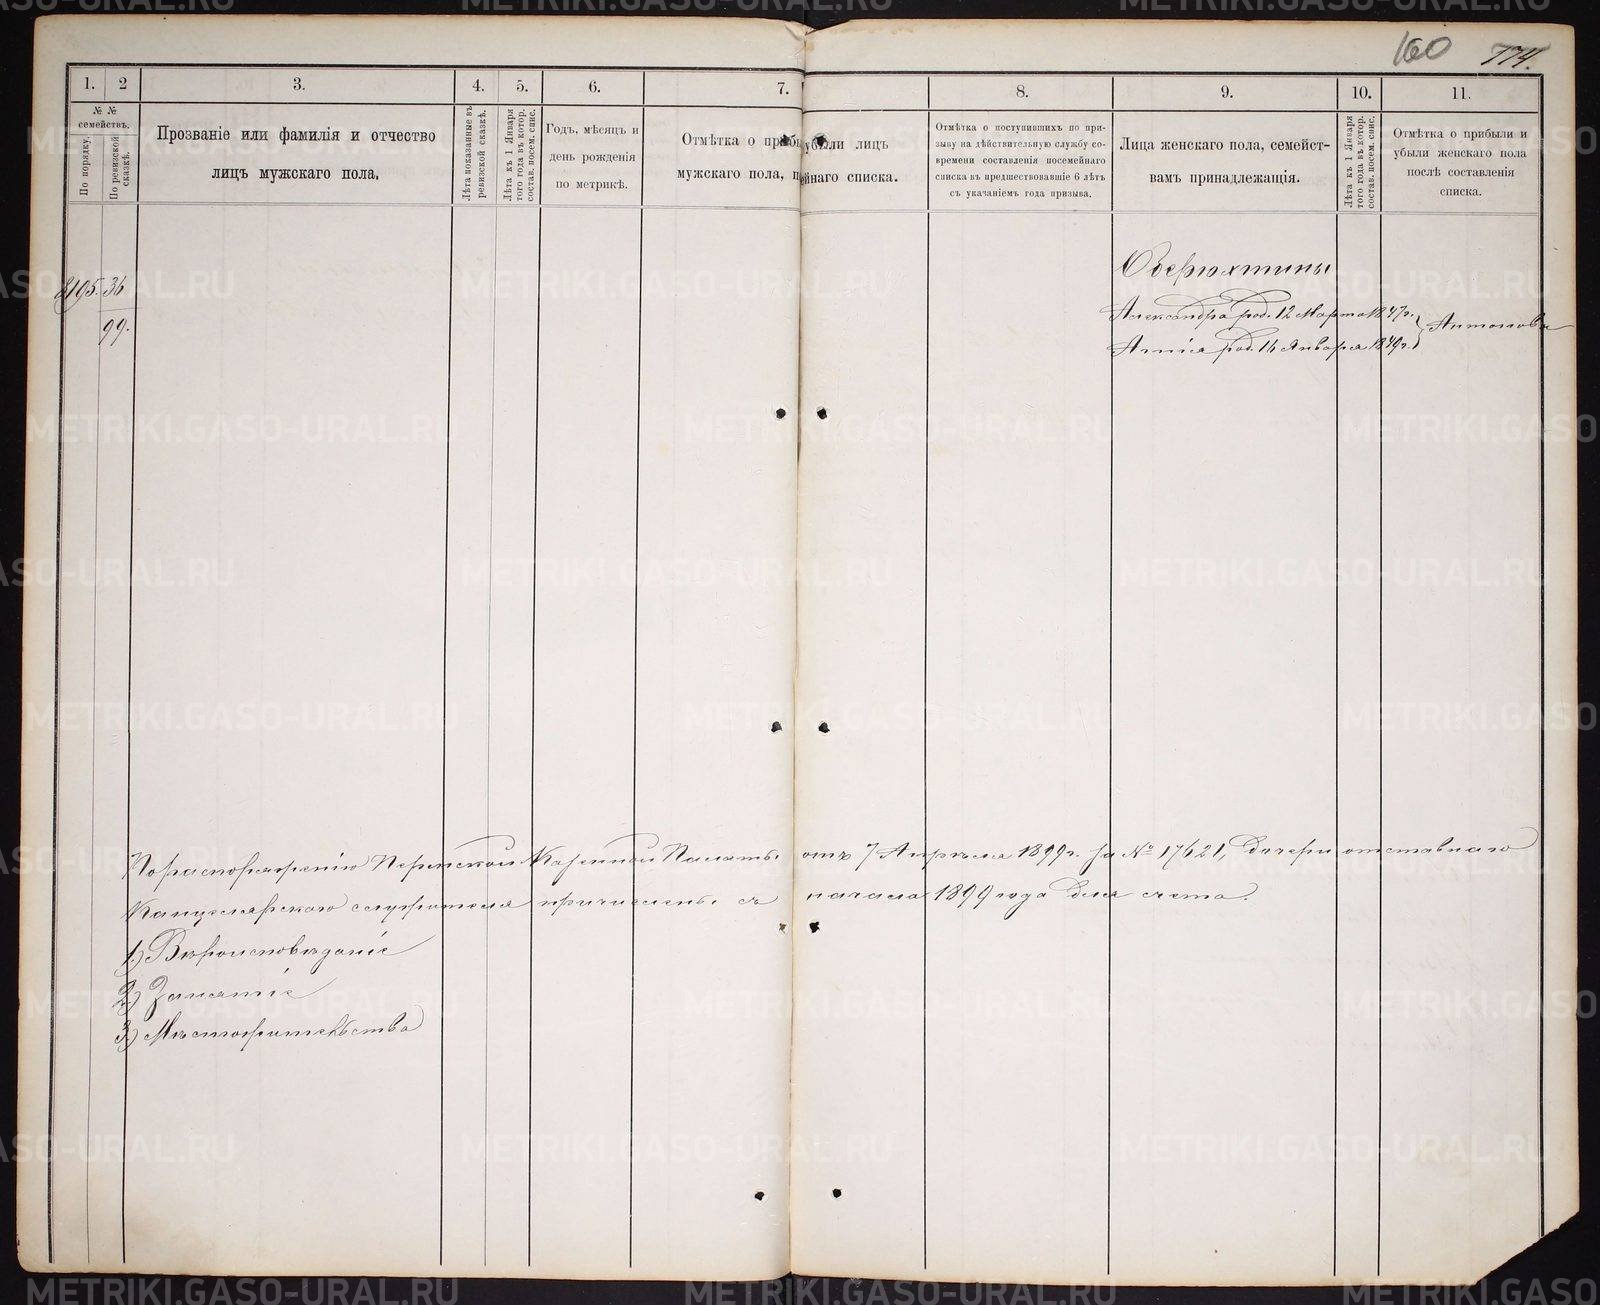 160 774.
1. 2 3. 4. 5. 6. 7. 8. 9. 10. 11.
№ №
семействъ.
По порядку.
По ревизской
сказкѣ.
Прозваніе или фамилія и отчество
лицъ мужскаго пола.
Лѣта показанные въ
ревизской сказкѣ.
Лѣта къ 1 Января
того года въ котор.
состав. посем. спис.
Годъ, мѣсяцъ и
день рожденія
по метрикѣ.
Отмѣтка о прибы убыли лицъ
мужскаго пола, п ейнаго списка.
Отмѣтка о поступившихъ по при-
зыву на дѣйствительную службу со-
времени составленія посемейнаго
списка въ предшествовавшіе 6 лѣтъ
съ указаніемъ года призыва.
Лица женскаго пола, семейст-
вамъ принадлежащія.
Лѣта къ 1 Января
того года въ котор.
состав. посем. спис.
Отмѣтка о прибыли и
убыли женскаго пола
послѣ составленія
списка.
8195. 36
99.
Оверюхтины
Александра род. 12 Марта 1847 г.
Агнія род. 16 Января 1849 г.
Антоновы
По распоряженію Пермской Казенной Палаты отъ 7 Апрѣля 1899 г. за № 17621, дочери отставнаго
Канцелярскаго служителя причислены съ начала 1899 года для счета.
1.) Вѣроисповѣданіе
2.) Занятіе
3.) Мѣстожительства
METRIKI.GASO-URAL.RU